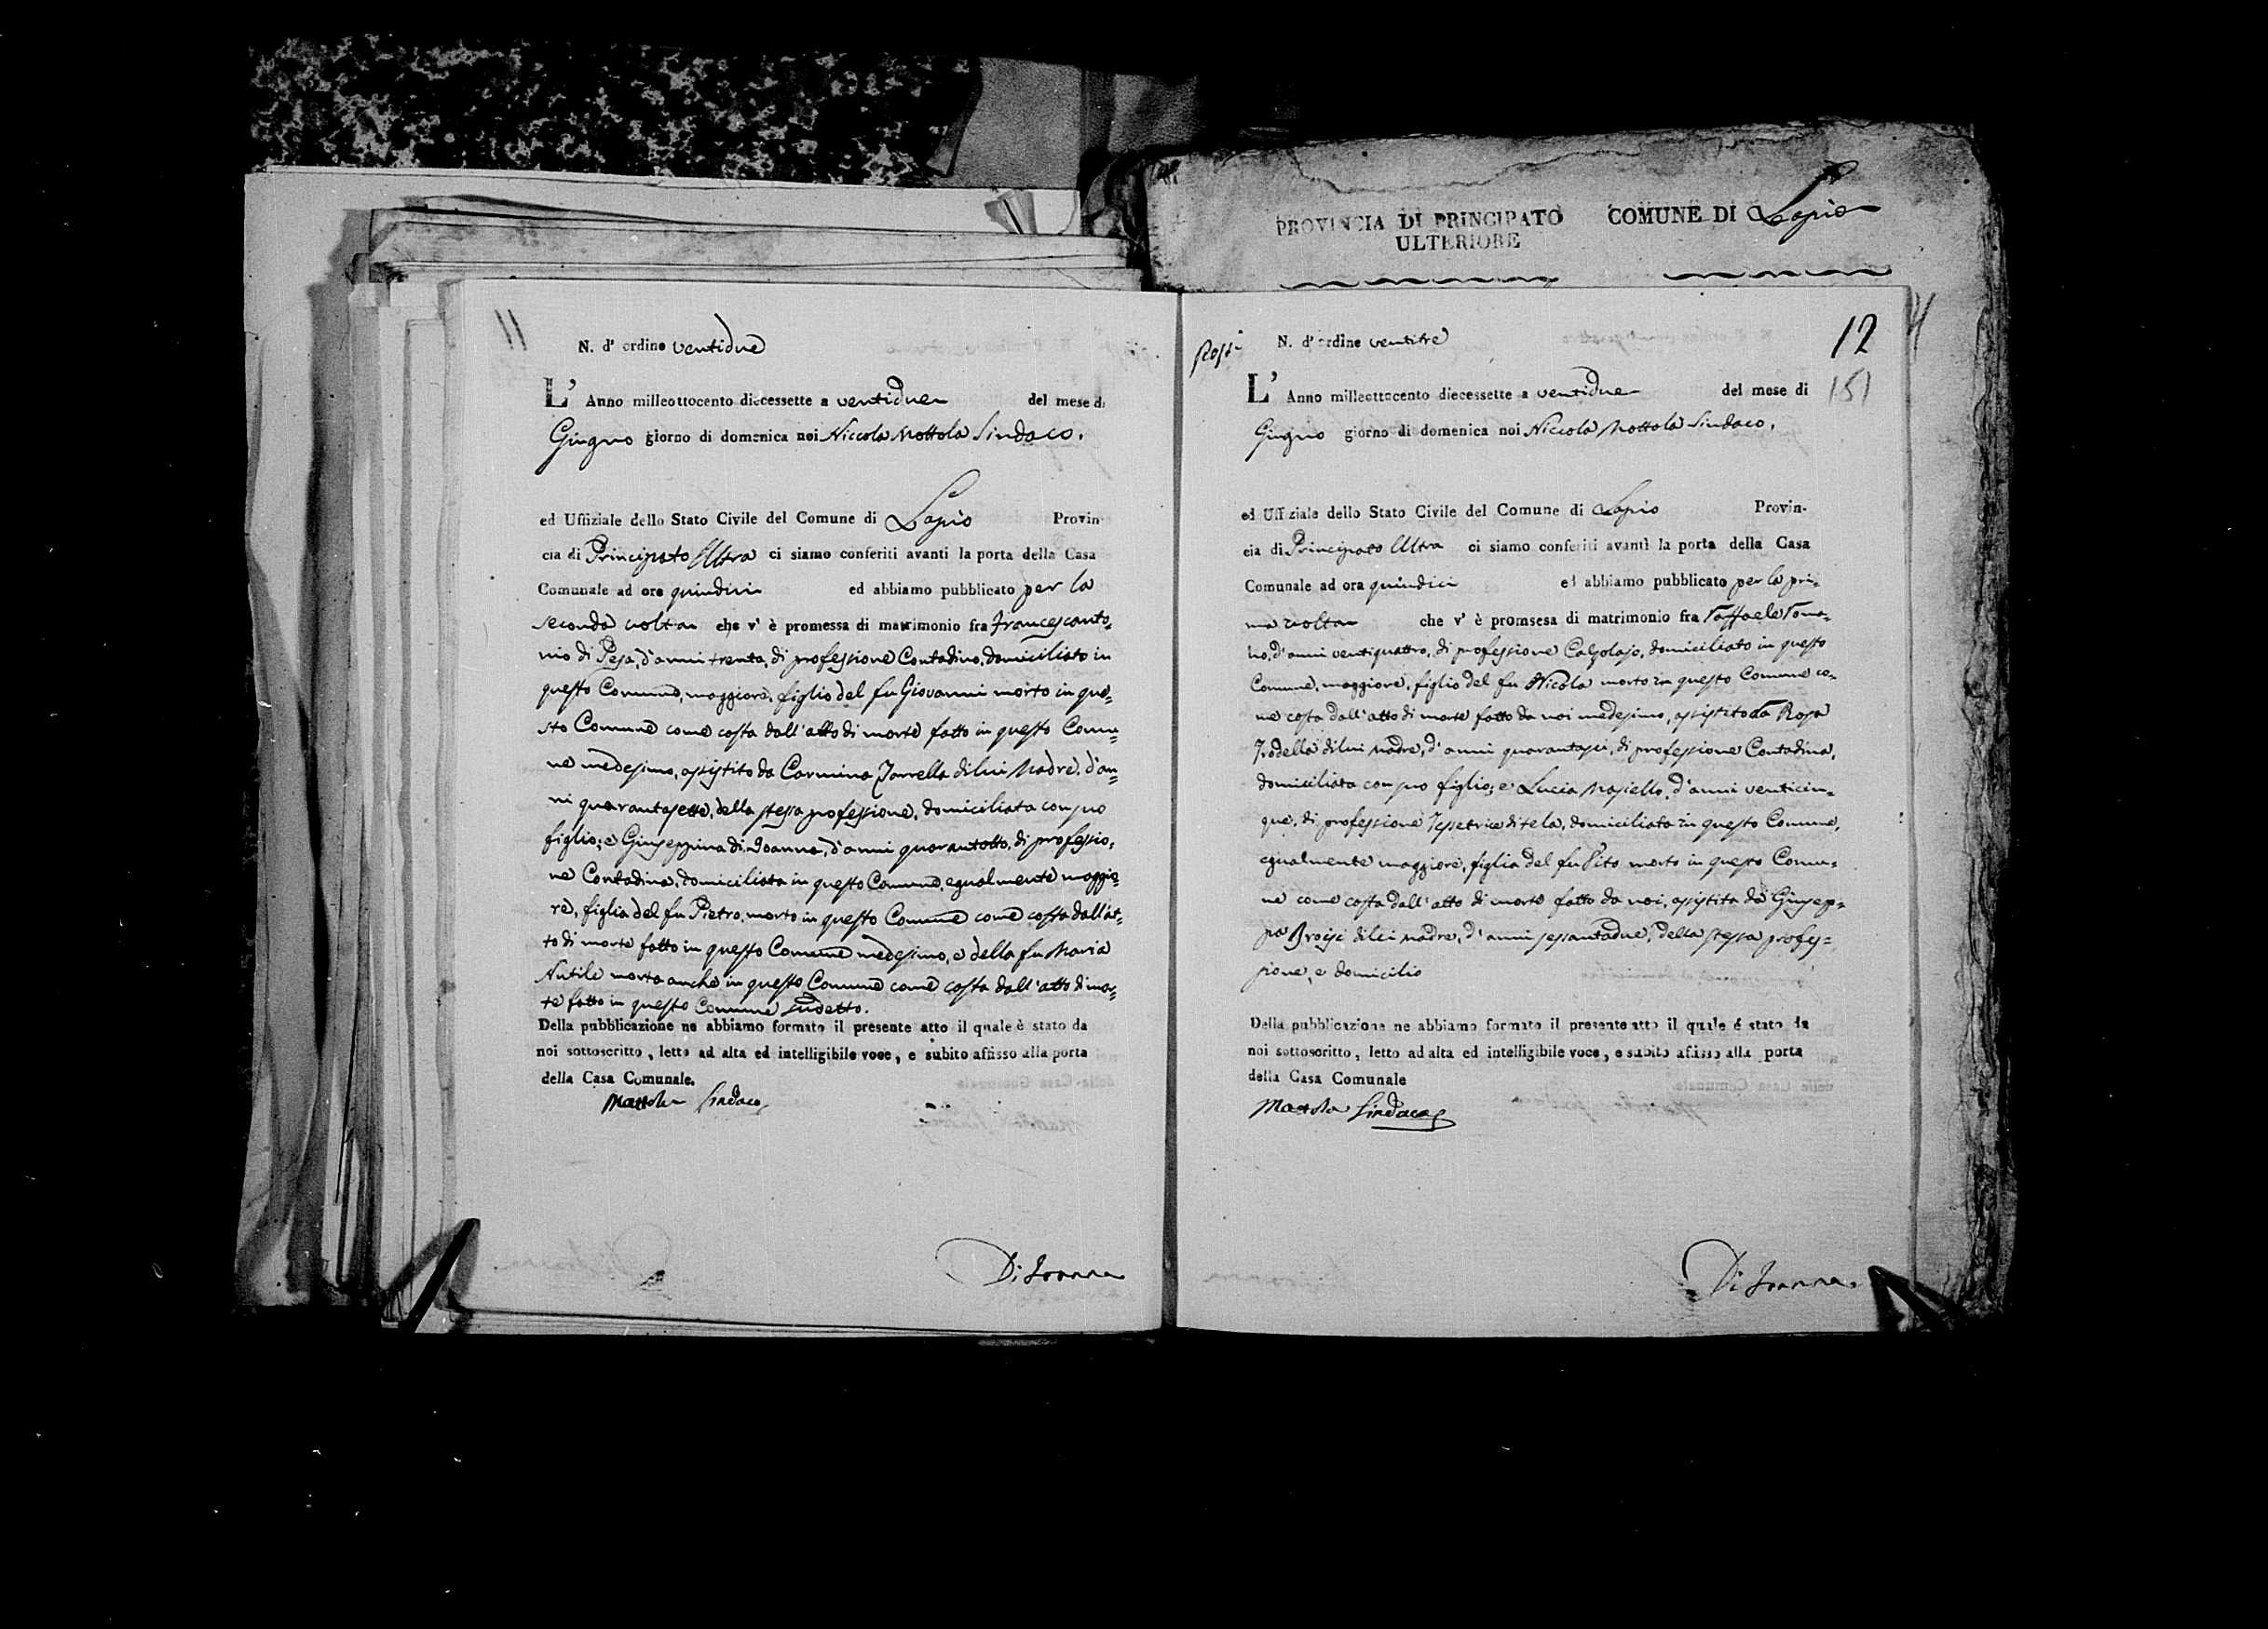 PROVINCIA DI PRINCIPATO
ULTERIORE
COMUNE DI Lapio
11
N. d' ordine ventidue
L' Anno milleottocento diecessette a ventidue del mese di
Giugno giorno di domenica noi Niccola Mottola Sindaco.
ed Uffiziale dello Stato Civile del Comune di Lapio Provin-
cia di Principato Ultra ci siamo conferiti avanti la porta della Casa
Comunale ad ore quindici ed abbiamo pubblicato per la
seconda volta che v' è promessa di matrimonio fra Francescanto=
nio di Pesa, d'anni trenta, di professione Contadino, domiciliato in
questo Comune, maggiore, figlio del fu Giovanni morto in que=
sto Comune come costa dall'atto di morte fatto in questo Comu=
ne medesimo, assistito da Carmina di lui Madre, d'an=
ni quarantasette, della stessa professione, domiciliata con suo
figlio; e Giuseppina di Joanna, d'anni quarantotto, di professio=
ne Contadina, domiciliata in questo Comune, egualmente maggio=
re, figlia del fu Pietro, morto in questo Comune come costa dall'at=
to di morte fatto in questo Comune medesimo, e della fu Maria
Nutile morta anche in questo Comune come costa dall'atto di mor=
te fatto in questo Comune sudetto.
Della pubblicazione ne abbiamo formato il presente atto il quale è stato da
noi sottoscritto, letto ad alta ed intelligibile voce, e subito affisso alla porta
della Casa Comunale.
Mottola Sindaco
Di Joanna
12
151
N. d' ordine ventitre
L' Anno milleottocento diecessette a ventidue del mese di
Giugno giorno di domenica noi Niccola Mottola Sindaco.
ed Uffiziale dello Stato Civile del Comune di Lapio Provin-
cia di Principato Ultra ci siamo conferiti avanti la porta della Casa
Comunale ad ora quindici ed abbiamo pubblicato per la pri=
ma volta che v' è promsesa di matrimonio fra Raffaele Roma=
no, d'anni ventiquattro, di professione Calzolajo, domiciliato in questo
Comune, maggiore, figlio del fu Nicola morto in questo Comune co=
me costa dall'atto di morte fatto da noi medesimo, assistito da Rosa
di lui Madre, d'anni quarantasei, di professione Contadina,
domiciliata con suo figlio; e Lucia Masiello, d'anni venticin=
que, di professione Tessetrice di tela, domiciliata in questo Comune,
egualmente maggiore, figlia del fu Vito morto in questo Comu=
ne come costa dall'atto di morte fatto da noi, assistita da Giusep=
pa di lei Madre, d'anni sessantadue, della stessa profes=
sione, e domicilio
Della pubblicazione ne abbiamo formato il presente atto il quale é stato da
noi sottoscritto, letto ad alta ed intelligibile voce, e subito affisso alla porta
della Casa Comunale
Mottola Sindaco
Di Joanna